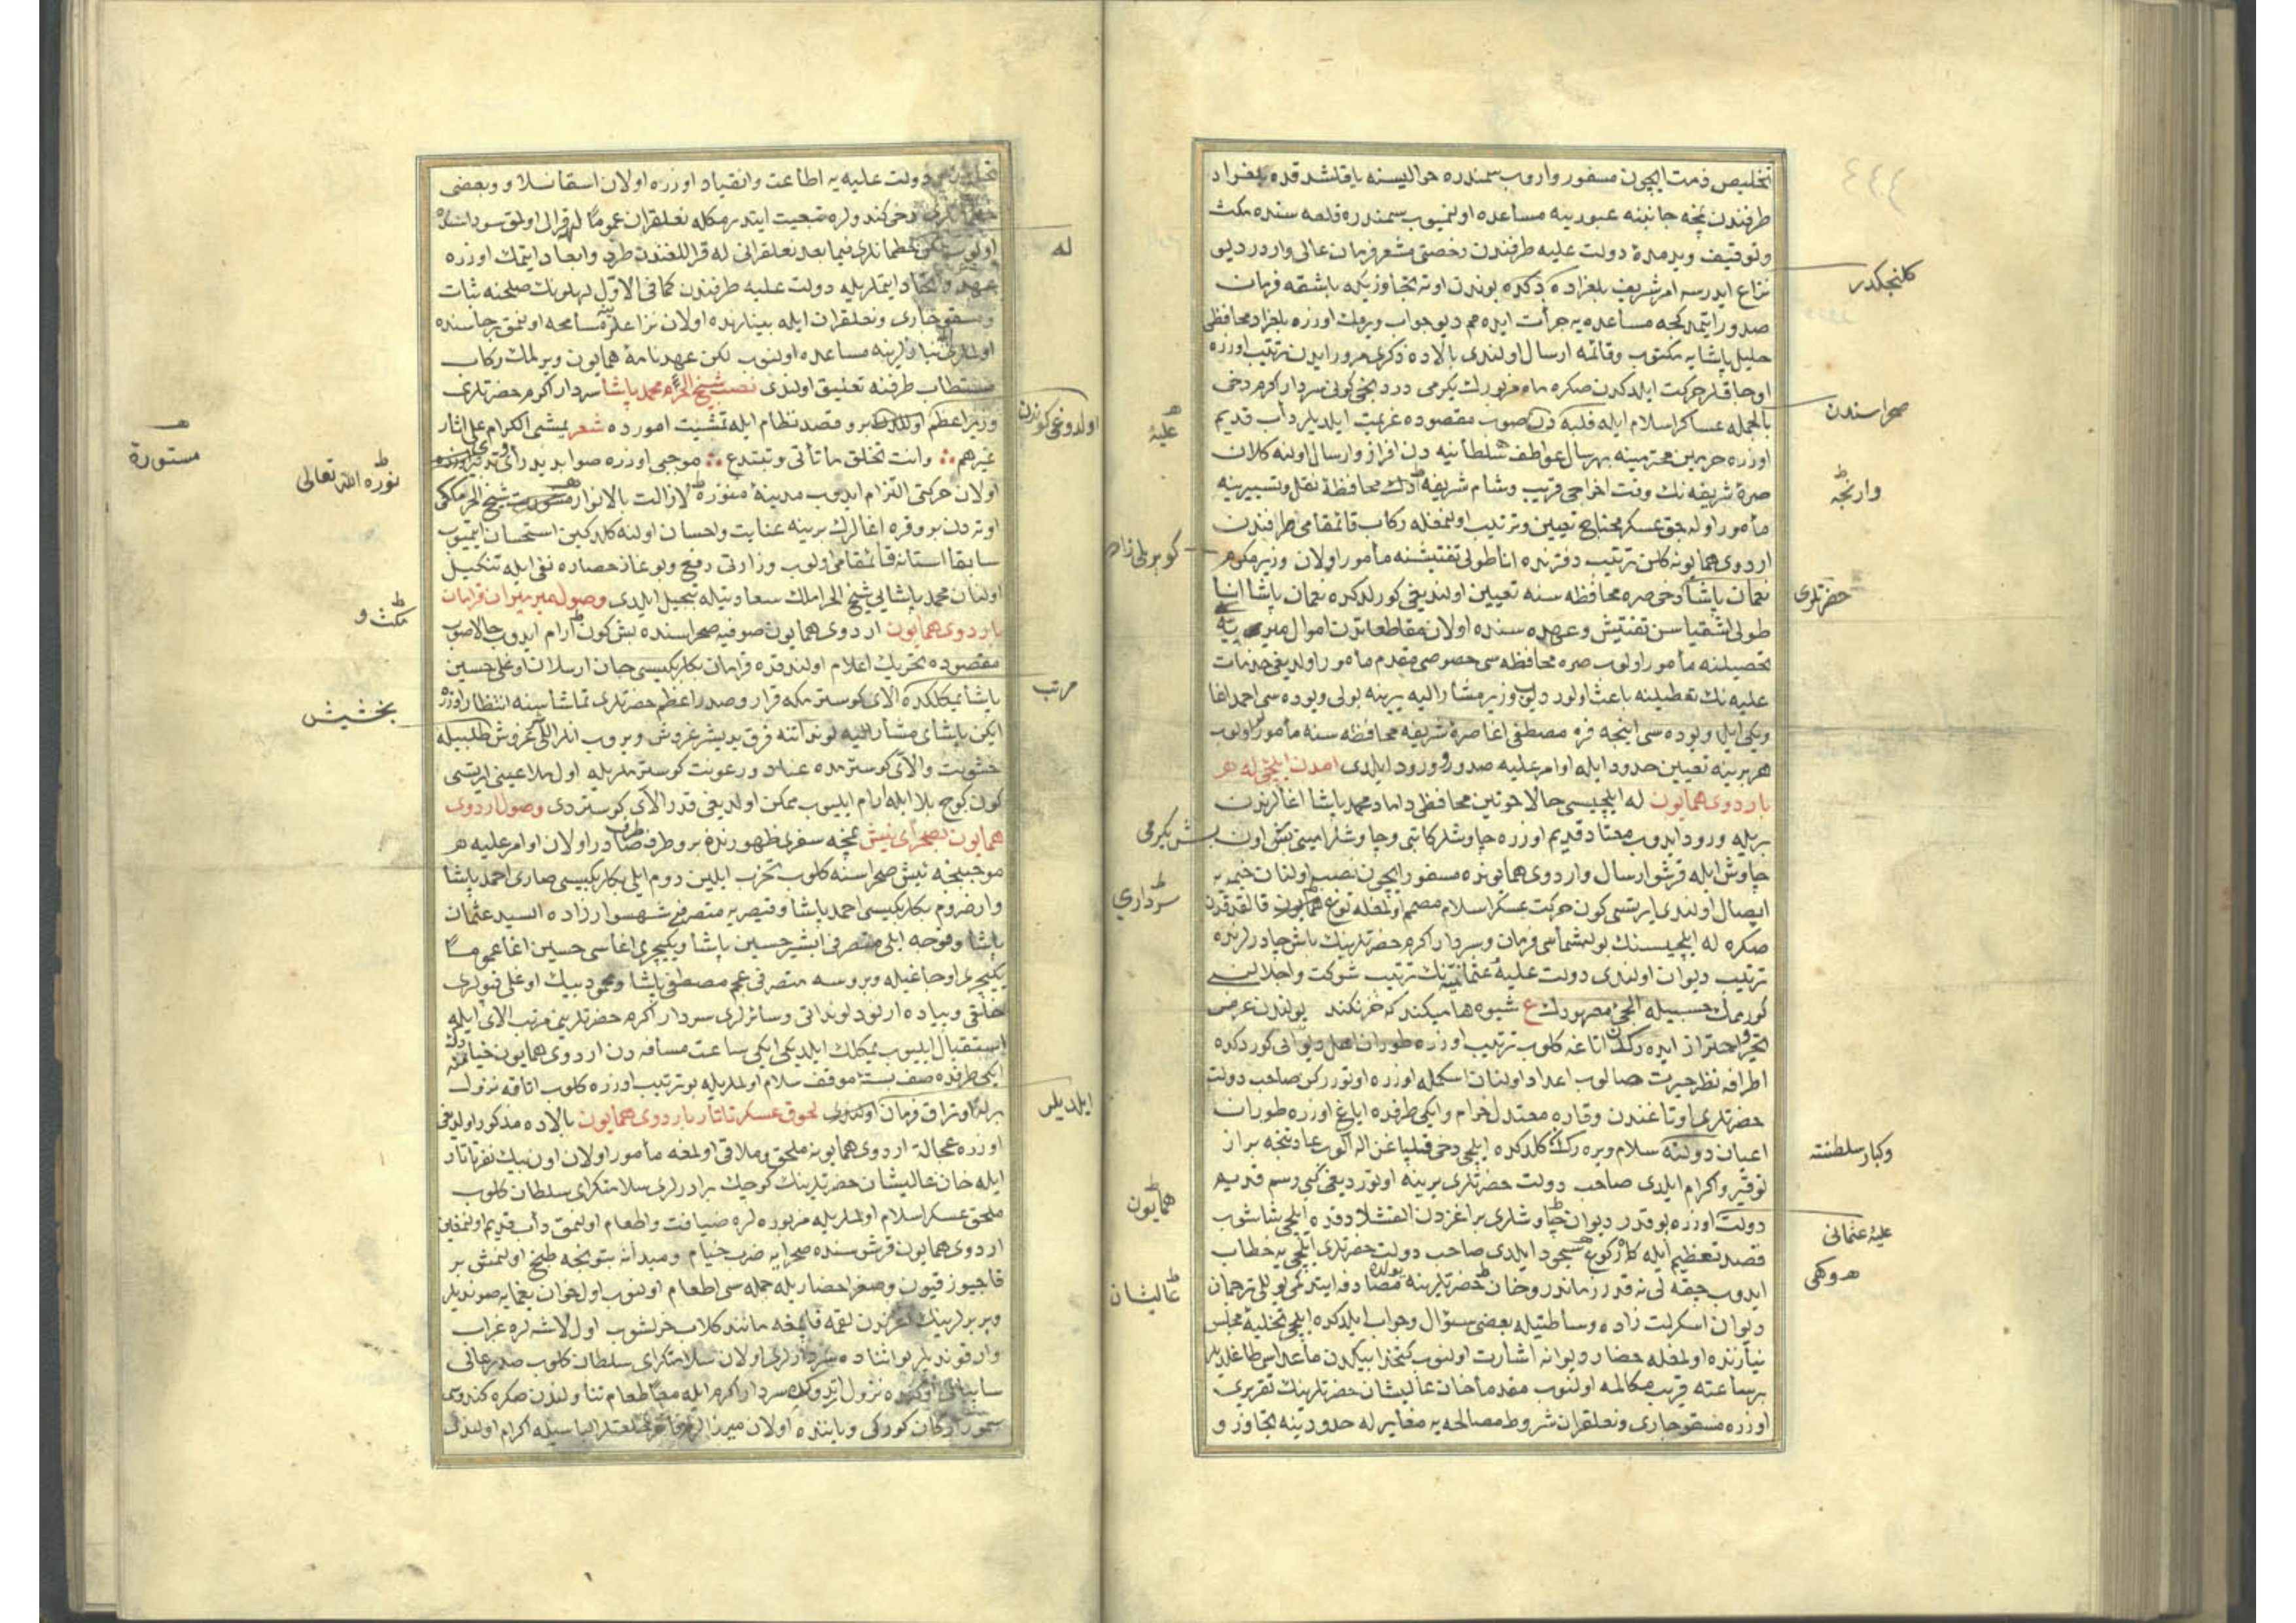 تخلیص ذمت ایچون مسفور واروب سمندره حوالیسنه یاقلشدقده بلغراد
طرفندن نچه جانبنه عبورینه مساعده اولنمیوب سمندره قلعه سنده مکث
وتوقیف وبر مدة دولت علیه طرفندن رخصتی مشعر فرمان عالی وارددر دیو
نزاع ایدرسه امر شریف بلغراده دکده بوندن اوته تجاوزیکه باشقه فرمان
صدور ایتمدکجه مساعده یه جرأت ایده مم دیو جواب ویرمك اوزره بلغراد محافظی
خلیل پاشایه مکتوب وقائمه ارسال اولندی بالاده ذکری مرور ایدن ترتیب اوزره
اوجاقلر حرکت ایلدکدن صکره ماه مزبورك یکرمی دردنجی کونی سردار اکرم دخی
بالجمله عساکر اسلام ایله فلبه دن صوب مقصوده عزیمت ایلدیلر دأب قدیم
اوزره حرمین محترمینه بهرسال عواطف سلطانیه دن افراز وارسال اولنه کلان
صرهٔ شریفه نك وقت اخراجی قریب وشام شریفه دك محافظهٔ نقل وتسییرینه
مأمور اوله جق عسکر محتاج تعیین وترتیب اولنمغله رکاب قائمقامی طرفندن
اردوی همایونه کلن ترتیب دفترنده اناطولی تفتیشنه مأمور اولان وزیر مکرم
نعمان پاشا دخی صره محافظه سنه تعیین اولندیغی کورلدکده نعمان پاشا انا
طولی اشقیاسن تفتیش وعهده سنده اولان مقاطعاتدن اموال میریه
تحصیلنه مأمور اولوب صره محافظه سی خصوصی مقدم مأمور اولدیغی خدمات
علیه نك تعطیلنه باعث اولور دیوب وزیر مشار الیه یرینه بولی ویوده سی احمد اغا
ویکی ایل ویوده سی اینجه قره مصطفی اغا صرهٔ شریفه محافظه سنه مأمور اولوب
هر برینه تعیین حدود ایله اوامر علیه صدور وورود ایلدی آمدن ایلچی له هر
باردوی همایون له ایلچیسی حالا خوتین محافظی داماد محمد پاشا اغالرندن
بریله ورود ایدوب معتاد قدیم اوزره چاوشلر کاتبی وچاوشلر امینی بش اون
چاوش ایله قرشو ارسال واردوی همایونده مسفور ایچون نصب اولنان خیمه یه
ایصال اولندی ایرتسی کون حرکت عسکر اسلام مصمم اولمغله توغ همایون قالقدقدن
صکره له ایلچیسنك بولشماسی فرمان وسردار اکرم حضرتلرینك باش چادرلرنده
ترتیب دیوان اولندی دولت علیهٔ عثمانیه نك ترتیب شوکت واجلالنی
کورمك حسبیله ایلچی مزبورك ع شیوه ها میکند که خر نکند یولندن عرض
اطرافه نظر حیرت صالوب اعداد اولنان اسکمله اوزره اوتوررکن صاحب دولت
حضرتلری اوتاغندن وقاره معتدل خرام وایکی طرفده ایاغ اوزره طوران
اعیان دولته سلام ویره رك کلدکده ایلچی دخی
توقیر واکرام ایلدی صاحب دولت حضرتلری یرینه اوتوردیغی کبی رسم قدیم
دولت اوزره بوقدر دیوان چاوشلری بر اغزدن القشلادقده ایلچی شاشوب
قصد تعظیم ایله کاه رکوع کاه سجود ایلدی صاحب دولت حضرتلری ایلچی یه خطاب
ایدوب چقه لی نه قدر زماندر وخان حضرتلرینه مصادفه ایتدکمی یوللی ترجمان
دیوان اسکرلت زاده وساطتیله بعضی سؤال وجواب ایلدکده ایلچی تخلیهٔ مجلس
نیازنده اولمغله حضار دیوانه اشارت اولنوب کتخدا بیکدن ماعداسی طاغلدیلر
بر ساعته قریب مکالمه اولنوب مقدما خان عالیشان حضرتلرینك تقریری
اوزره مسقو چاری ونعلقران شروط مصالحه یه مغایر له حدودینه تجاوز و
کلنجکدر
صحراسندن
وارنجه
حضرتلری
وکبار سلطنته
علیهٔ عثمانی
علیهٔ
کوپریلی زاده
بش یکرمی
سرداری
همایون
عالیشان
دولت علیه یه اطاعت وانقیاد اوزره اولان استانسلاو وبعضی
دخی کندولره تبعیت ایتدرمکله نعلقران عموما له قرال اولمق سوداسنده
اولنوب خطمانلری فیما بعد نعلقرانی له قراللغندن طرد وابعاد ایتمك اوزره
ایتملریله دولت علیه طرفندن کما فی الاول لهلونك صلحنه ثبات
ومسقو چاری ونعلقران ایله بینلرنده اولان نزاعلرینه مسامحه اولنمق رجاسنده
اولملریله نیازلرینه مساعده اولنوب لکن عهدنامهٔ همایون ویرلمك رکاب
مستطاب طرفنه تعلیق اولندی نصب شیخ الحرم محمد پاشا سردار اکرم حضرتلری
وزیر اعظم اولالدن برو قصد نظام ایله تمشیت امورده شعر یمشی الکرام علی آثار
غیرهم وانت تخلق ما تأتی وتبتدع موجبی اوزره صوابدید رأی
اولان حرکتی التزام ایدوب مدینهٔ منوره لازالت بالانوار شیخ الحرملکی
اوته دن برو قره اغالرك برینه عنایت واحسان اولنه کلدکین استحسان ایتمیوب
سابقا استانه قائمقامی اولوب وزارتی رفع وبوغاز حصارده نفی ایله تنکیل
اولنان محمد پاشایی شیخ الحراملك سعادتیله تبجیل ایلدی وصول میرمیران قرامان
باردوی همایون اردوی همایون صوفیه صحراسنده بش کون آرام ایدوب حالا صوب
مقصوده تحریك اعلام اولندقده قرامان بکلربکیسی جان ارسلان اوغلی حسین
پاشا ییکلکده الای کوسترمکه قرار وصدر اعظم حضرتلری تماشاسنه انتظار اوزره
ایکن پاشای مشار الیه لونداتنه قرق یدیشر غروش ویروب انلر اللی غروش طلبیله
خشونت والای کوسترمده عناد ورعونت کوسترملریله اول ملاعینی ایرتسی
کون کوج بلا ایله آرام ایلیوب ممکن اولدیغی قدر الای کوستردی وصول اردوی
همایون بصحرای نیش نمچه سفری ظهورندن برو طرف طرف صادر اولان اوامر علیه
موجبنجه نیش صحراسنه کلوب تحزب ایلین روم ایلی بکلربکیسی صاری احمد پاشا
وارضروم بکلربکیسی احمد پاشا وقیصریه متصرفی شهسوار زاده السید عثمان
پاشا وقوجه ایلی متصرفی ابشیر حسین پاشا ویکیچری اغاسی حسین اغا عموما
یکیچری اوجاغیله وبروسه متصرفی عجم مصطفی پاشا ومحمود بیك اوغلی قپولری
خلقی وپیاده ارنود لونداتی وسائرلری سردار اکرم حضرتلرینی مرتب الای ایله
استقبال ایلیوب ییکلك ایلدیکی ایکی ساعت مسافه دن اردوی همایون خیامنه دك
ایکی طرفده صف بسته موقف سلام اولملریله بو ترتیب اوزره کلوب اتاقه نزول
اوتراق فرمان اولندی لحوق عسکر تاتار باردوی همایون بالاده مذکور اولدیغی
اوزره عجالة اردوی همایونه ملحق وملاقی اولمغه مأمور اولان اون بیك نفر تاتار
ایله خان عالیشان حضرتلرینك کوچك برادرلری سلامتکرای سلطان کلوب
ملحق عسکر اسلام اولملریله مزبوره لره ضیافت واطعام اولنمق دأب قدیم اولنمغین
اردوی همایون قرشوسنده صحرایه ضرب خیام ومیدانه بتونجه طبخ اولنمش بر
قاچ یوز قیون وصغر احضاریله جمله سی اطعام اولنوب اول خوان یغمایه صوندیلر
وبربرلرینك اغزندن لقمه قاپمغه مانند کلاب خرلشوب اول لاشه لره غراب
وار قوندیلر بو اثناده سردارلری اولان سلامتکرای سلطان کلوب صدر عالی
سایبانی اوکنده نزول ایتدکده سردار اکرم ایله معا طعام تناولندن صکره کندوسی
سمور ارکان کورکی ویاننده اولان میرزالر فاخر خلعتلر الباسیله اکرام اولندی
له
اولدوغی کوندن
مرتب
ایلدیلر
نوره الله تعالی
مستورة
مکث و
بخشیش